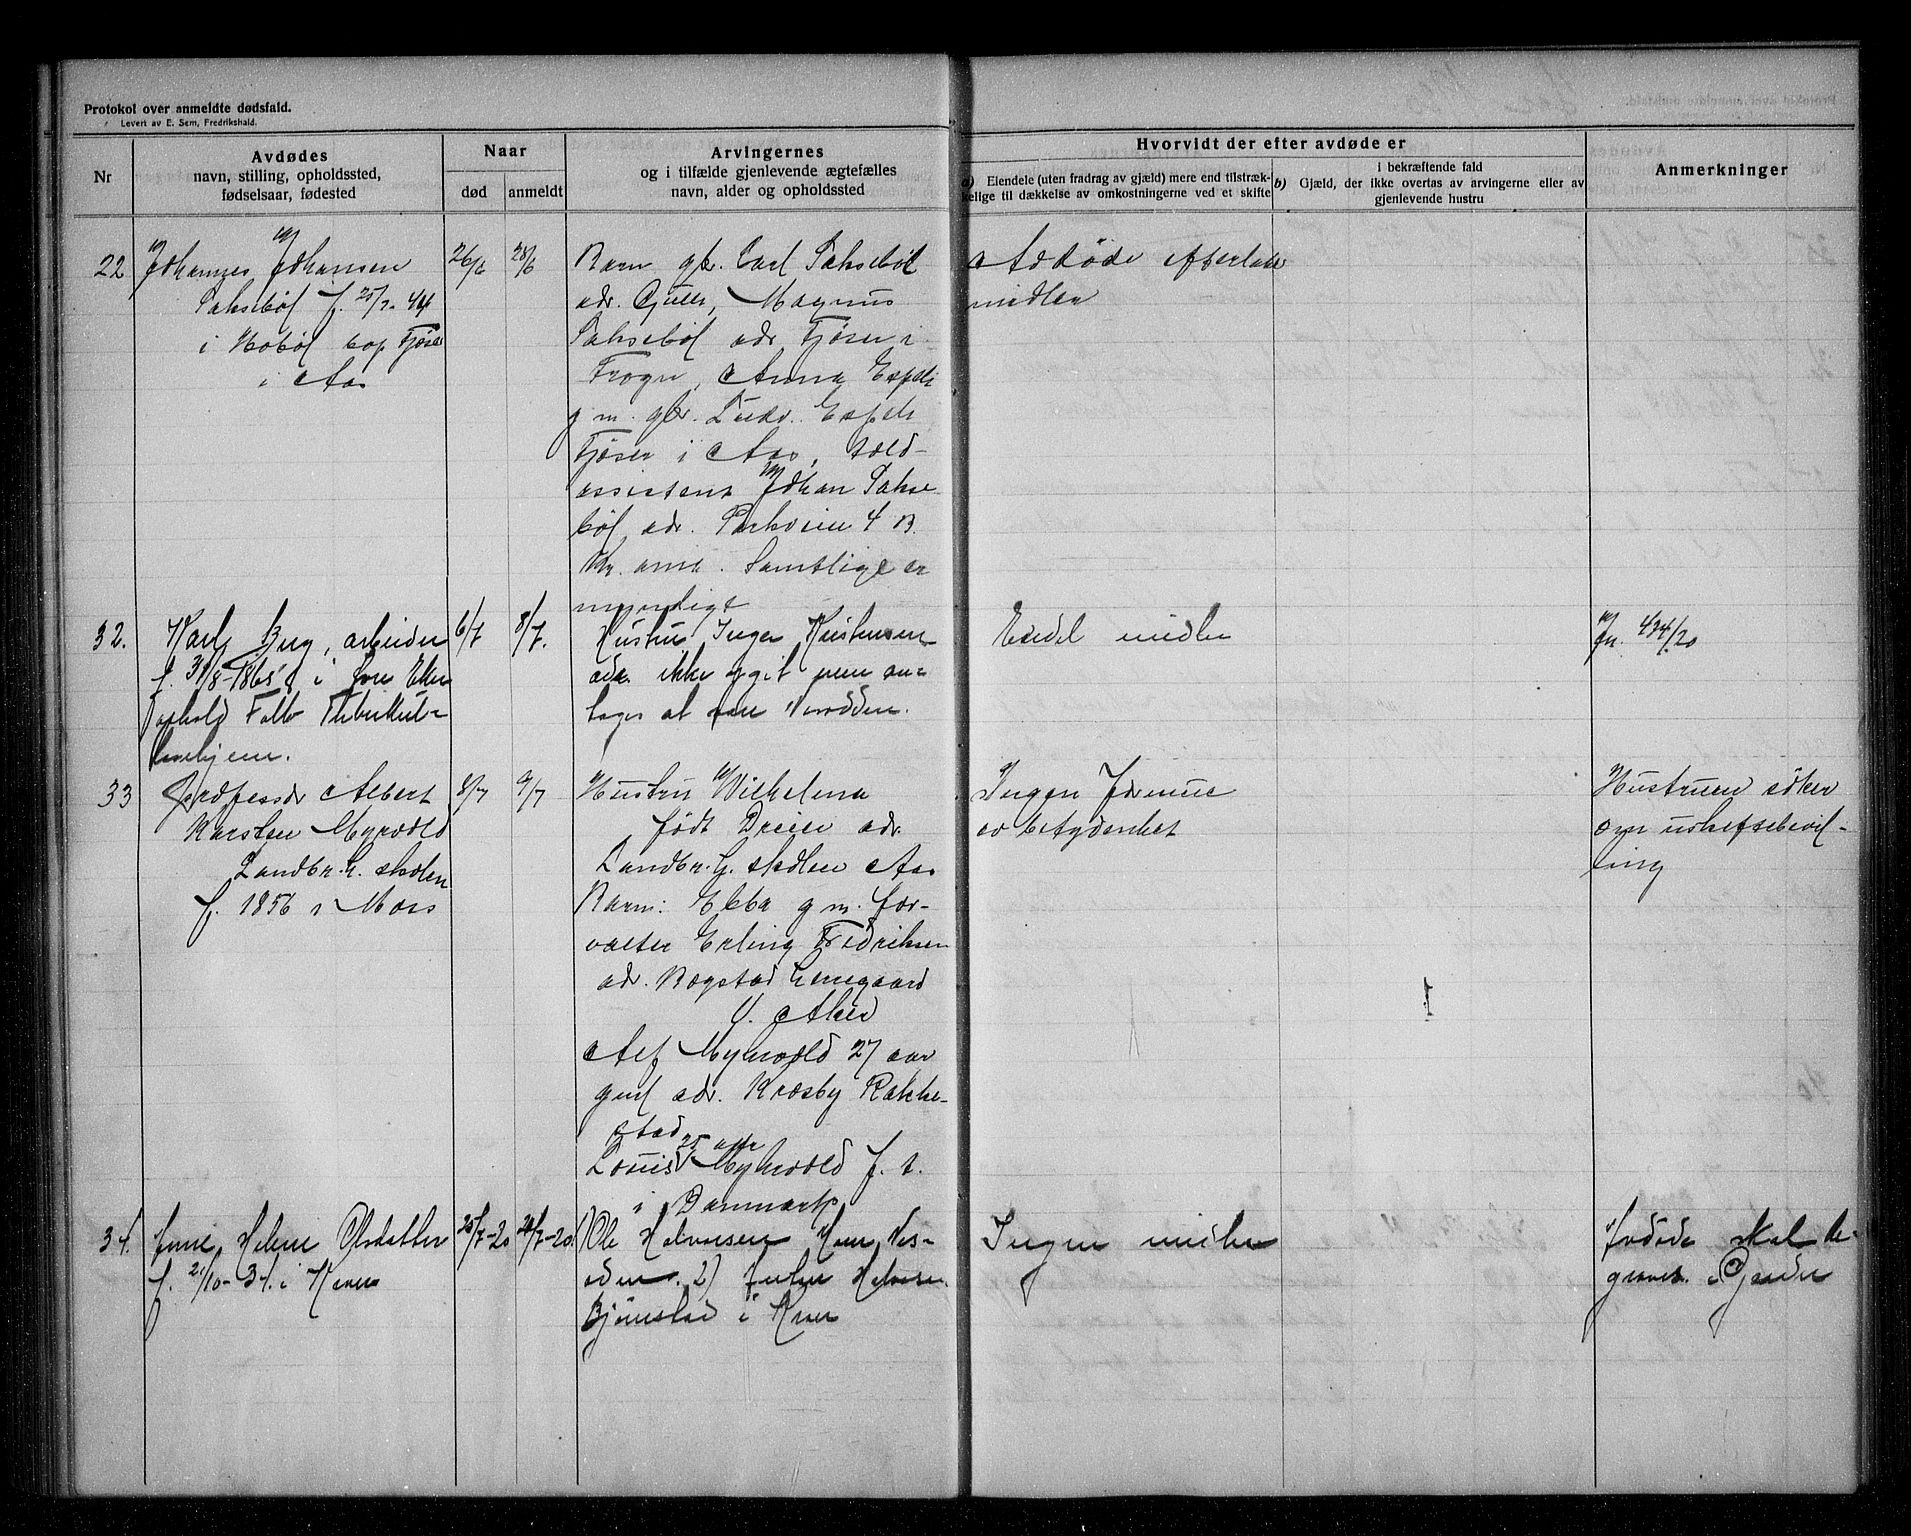 Protokol over anmeldte dødsfald.
Levert av E. Sem, Fredrikshald.
Nr
Avdødes
navn, stilling, opholdssted,
fødselsaar, fødested
Naar
død
anmeldt
Arvingernes
og i tilfælde gjenlevende ægtefælles
navn, alder og opholdssted
Hvorvidt der efter avdøde er
a) Eiendele (uten fradrag av gjæld) mere end tilstræk-
kelige til dækkelse av omkostningerne ved et skifte
i bekræftende fald
b) Gjæld, der ikke overtas av arvingerne eller av
gjenlevende hustru
Anmerkninger
22
Johannes Johansen
Saksebøl f. 25/7-44
i Hobøl bop Tjøser
i Aas
26/6
28/6
Barn gbr. Carl Saksebøl
adr. Gjulls, Magnus
Saksebøl adr Tjøser i
Frogn, Anna Espeli
g m. gbr. Ludv. Espeli
Tjøser i Aas, told-
assistent Johan Sakse
bøl adr. Parkveien 4 B.
Kr. ania. Samtlige er
myndige
Avdøde efterlot
midler
32.
Karl Berg, arbeider
f. 31/8-1865 i Øvre Eker
ophold Follo Tuberkul-
osehjem.
6/7
8/7.
Hustru Inger Kristensen
adr. ikke opgit men an-
tages at være Notodden.
Endel midler
Jn. 434/20
33
Professor Albert
Karsten Myrvold
Landbr. h. skolen
f. 1856 i Moss
8/7
9/7
Hustru Wilhelmina
født Dreier adr.
Landbr. h. skolen Aas
Barn: Ebba g m. for-
valter Erling Fredriksen
adr. Bogstad Hovegaard
V. Aker
Alf Myhrvold 27 aar
gml adr. Kræsby Rakke-
stad
25 aar
Louis Myhrvold f. t.
i Danmark
Ingen formue
av betydenhet
Hustruen søker
om uskiftebevil-
ling
34.
Anne Helene Olsdatter
f. 21/10-34. i Kraer
20/7-20
24/7-20.
1) Ole Halvorsen Kraer Nes-
odden. 2) Julie Halvorsen
Bjørnstad i Kraer
Ingen midler
Avdøde skal be-
graves i Gjerdr